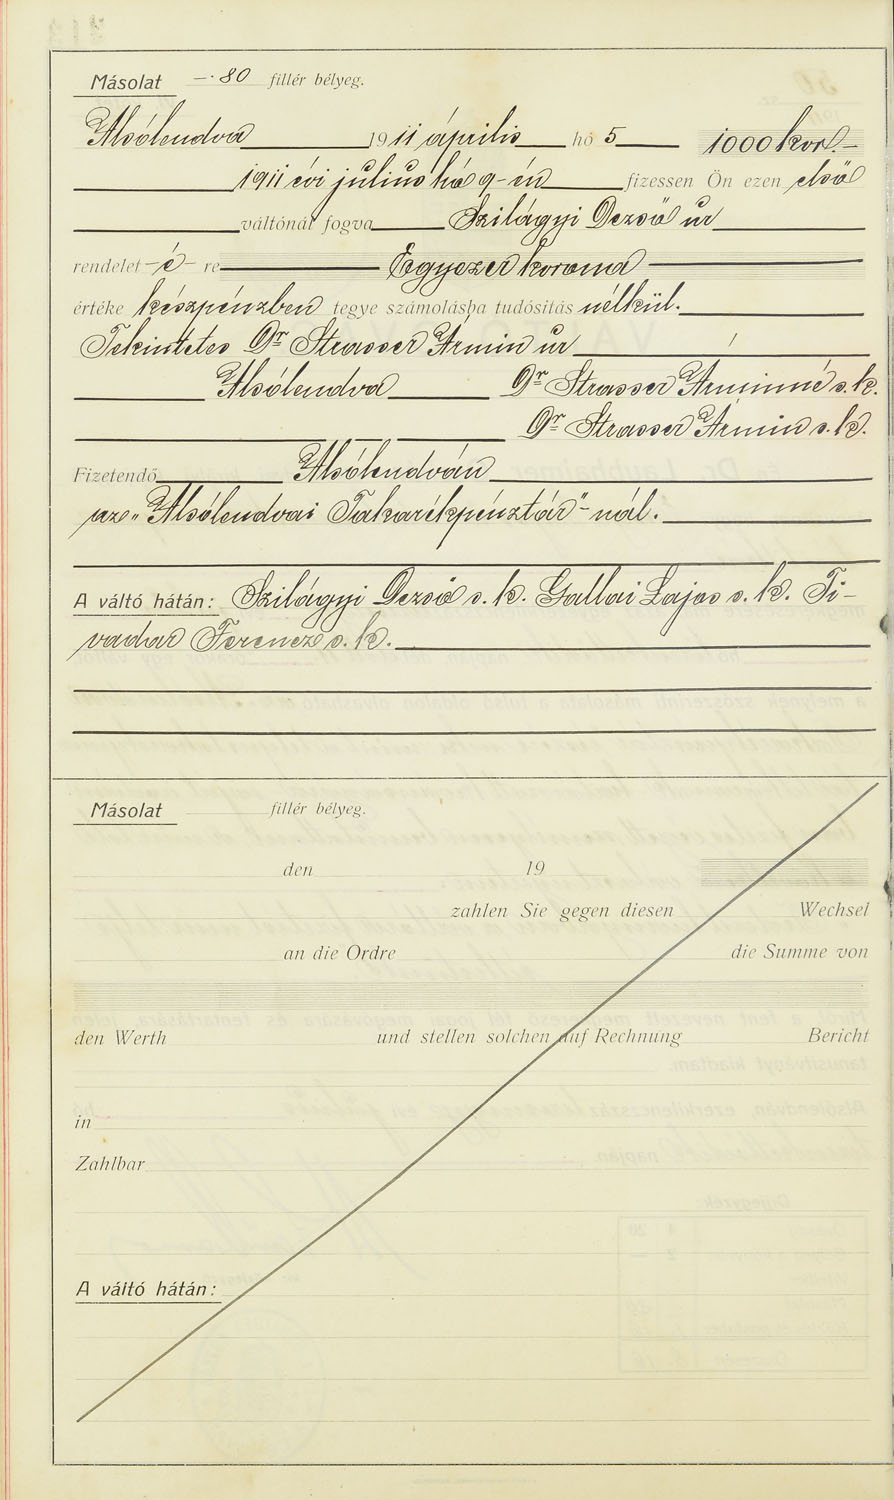 Másolat —·80 fillér bélyeg.
Alsólendva 1911 április hó 5 1000 kor.–
1911 évi julius hó 9-én fizessen Ön ezen első
váltónál fogva Szilágyi Dezső úr
rendelet -é- re Egyezer korona
értéke készpénzben tegye számolásba tudósitás nélkül.
Tekintetes Dr Strasser Ármin úr
Alsólendva Dr Strasser Árminné s. k.
Dr Strasser Ármin s. k.
Fizetendő Alsólendván
az „Alsólendvai Takarékpénztár"-nál.
A váltó hátán: Szilágyi Dezső s. k. Gallai Lajos s. k. Ti-
vadar Ferencz s. k.
Másolat fillér bélyeg.
den 19
zahlen Sie gegen diesen Wechsel
an die Ordre die Summe von
den Werth und stellen solchen auf Rechnung Bericht
in
Zahlbar
A váltó hátán: